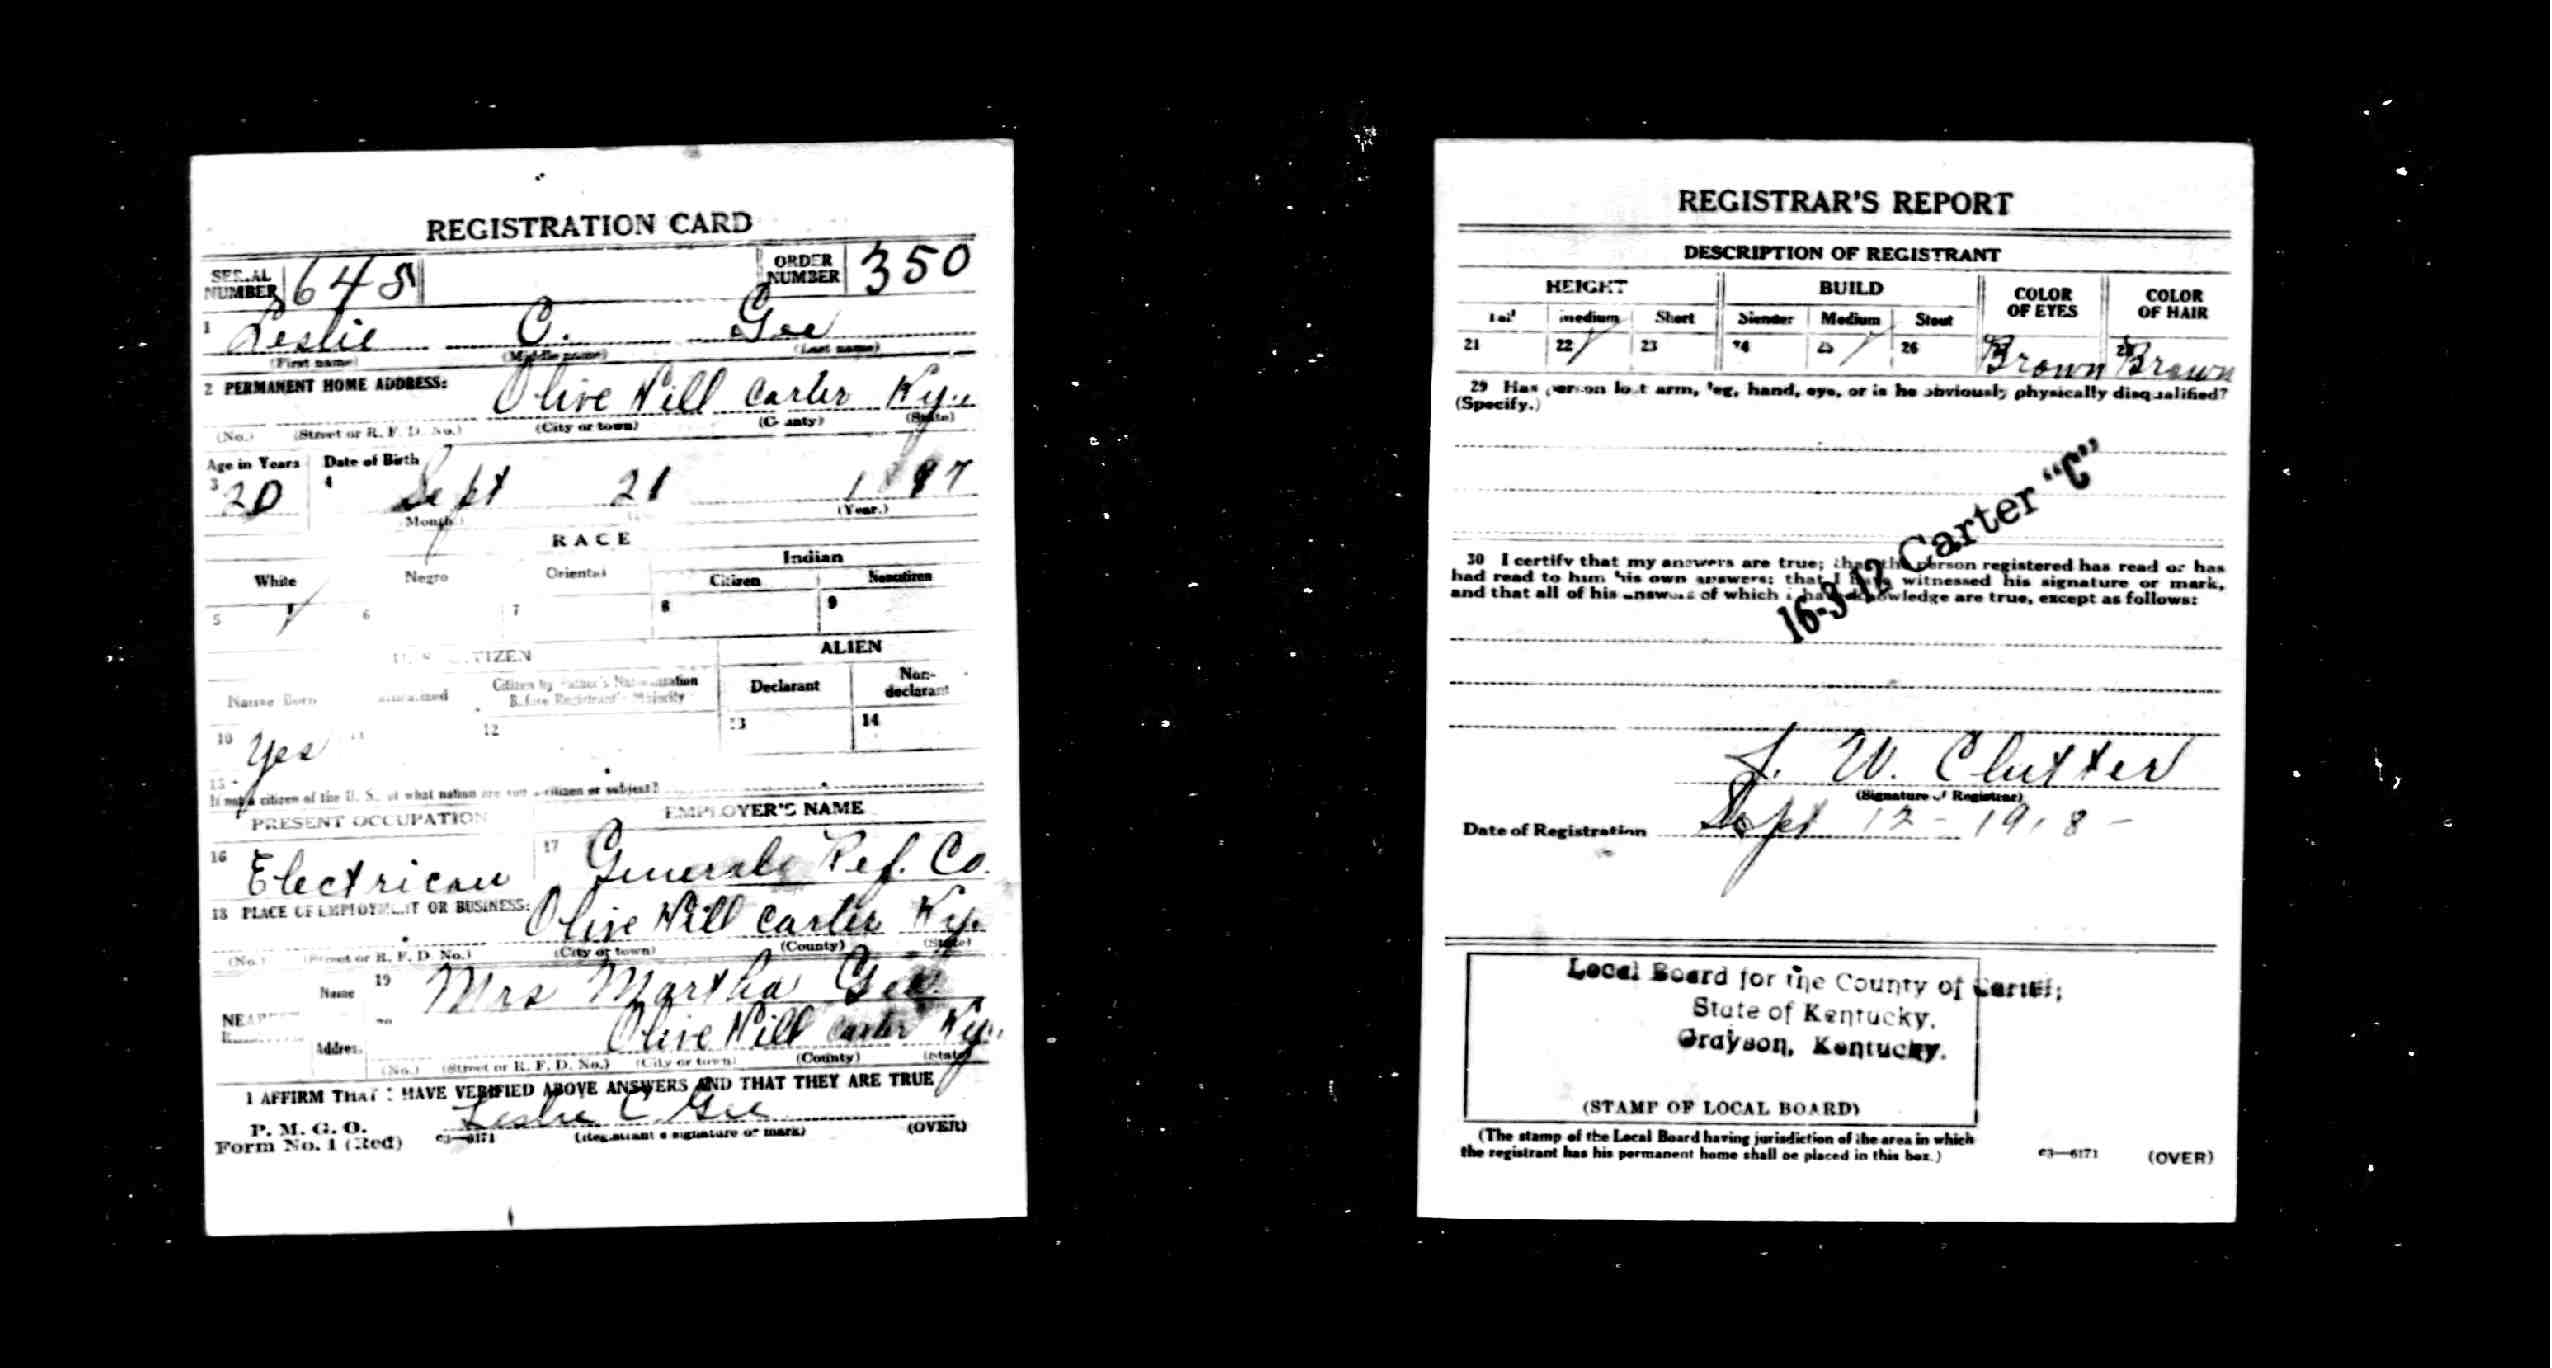 REGISTRATION CARD
SERIAL NUMBER 648 ORDER NUMBER 350
1 Leslie C. Gee
(First name) (Middle name) (Last name)
2 PERMANENT HOME ADDRESS:
Olive Hill Carter Ky.
(No.) (Street or R. F. D. No.) (City or town) (County) (State)
Age in Years Date of Birth
3 20 4 Sept 21 1897
(Month.) (Year.)
RACE
White Negro Oriental Indian
Citizen Noncitizen
5 6 7 8 9
U. S. CITIZEN ALIEN
Native Born Citizen by Father's Naturalization Before Registrant's Majority Declarant Non-declarant
10 Yes 11 12 13 14
15
If not a citizen of the U. S., of what nation are you a citizen or subject?
PRESENT OCCUPATION EMPLOYER'S NAME
16 Electrican 17 General Ref. Co.
18 PLACE OF EMPLOYMENT OR BUSINESS:
Olive Hill Carter Ky.
(No.) (Street or R. F. D. No.) (City or town) (County) (State)
Name 19 Mrs Martha Gee
NEAREST
Address 20 Olive Hill Carter Ky.
(No.) (Street or R. F. D. No.) (City or town) (County) (State)
I AFFIRM THAT I HAVE VERIFIED ABOVE ANSWERS AND THAT THEY ARE TRUE
Leslie C Gee
P. M. G. O.
Form No. 1 (Red) 03—6171 (Registrant's signature or mark) (OVER)
REGISTRAR'S REPORT
DESCRIPTION OF REGISTRANT
HEIGHT BUILD COLOR OF EYES COLOR OF HAIR
Tall Medium Short Slender Medium Stout
21 22 23 24 25 26 Brown Brown
29 Has person lost arm, leg, hand, eye, or is he obviously physically disqualified?
(Specify.)
16-3-12 Carter "C"
30 I certify that my answers are true; that the person registered has read or has
had read to him his own answers; that I have witnessed his signature or mark,
and that all of his answers of which I have knowledge are true, except as follows:
W. Clutter
(Signature of Registrar)
Date of Registration Sept 12 - 1918 -
Local Board for the County of Carter,
State of Kentucky.
Grayson, Kentucky.
(STAMP OF LOCAL BOARD)
(The stamp of the Local Board having jurisdiction of the area in which
the registrant has his permanent home shall be placed in this box.)
03—6171 (OVER)